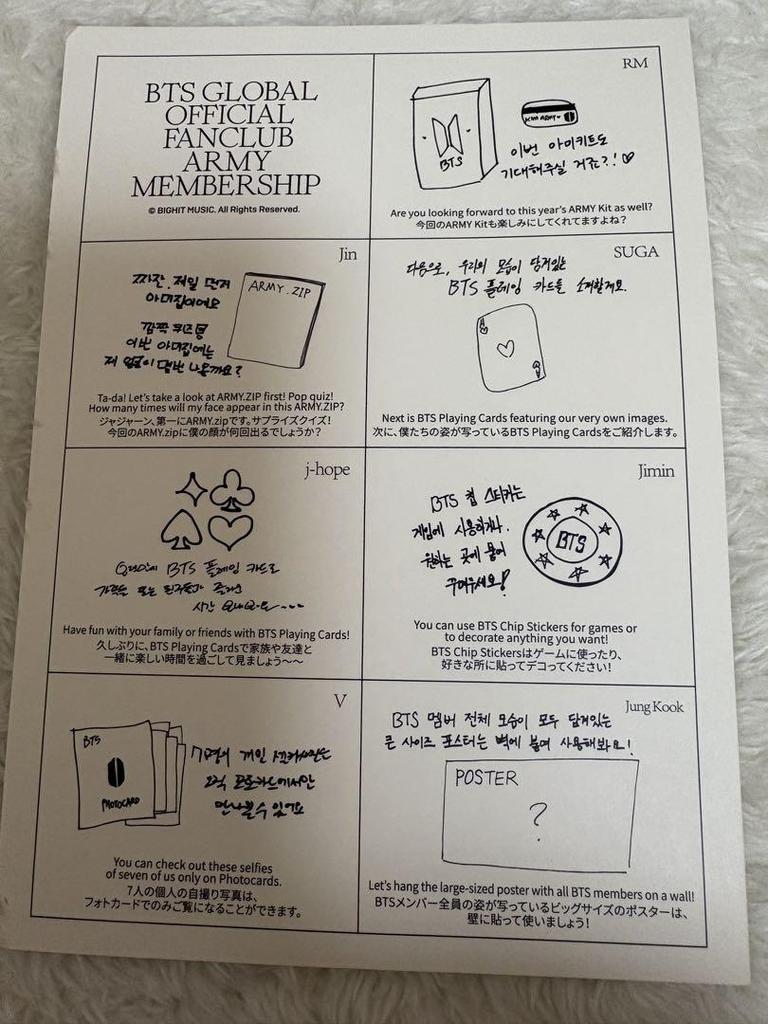 BTS GLOBAL
OFFICIAL
FANCLUB
ARMY
MEMBERSHIP
© BIGHIT MUSIC. All Rights Reserved.
RM
BTS
KIM ARMY
이번 아미키트도
기대해주실 거죠?!♡
Are you looking forward to this year's ARMY Kit as well?
今回のARMY Kitも楽しみにしてくれてますよね?
Jin
짜잔. 제일 먼저
아미집이에요
ARMY.ZIP
깜짝 퀴즈
이번 아미집에는
제 얼굴이 몇번 나올까요?
Ta-da! Let's take a look at ARMY.ZIP first! Pop quiz!
How many times will my face appear in this ARMY.ZIP?
ジャジャーン、第一にARMY.zipです。サプライズクイズ!
今回のARMY.zipに僕の顔が何回出るでしょうか?
SUGA
다음으로, 우리의 모습이 담겨있는
BTS 플레잉 카드를 소개할게요.
A
A
Next is BTS Playing Cards featuring our very own images.
次に、僕たちの姿が写っているBTS Playing Cardsをご紹介します。
j-hope
오랜만에 BTS 플레잉 카드로
가족들 또는 친구들과 즐거운
시간
Have fun with your family or friends with BTS Playing Cards!
久しぶりに、BTS Playing Cardsで家族や友達と
一緒に楽しい時間を過ごして見ましょう〜〜
Jimin
BTS 칩 스티커는
게임에 사용하거나.
원하는 곳에 붙여
꾸며주세요!
BTS
You can use BTS Chip Stickers for games or
to decorate anything you want!
BTS Chip Stickersはゲームに使ったり、
好きな所に貼ってデコってください!
V
BTS
PHOTOCARD
7명의 개인 셀카사진은
오직 포토카드에서만
만나볼수 있어요
You can check out these selfies
of seven of us only on Photocards.
7人の個人の自撮り写真は、
フォトカードでのみご覧になることができます。
Jung Kook
BTS 멤버 전체 모습이 모두 담겨있는
큰 사이즈 포스터는 벽에 붙여 사용해봐요!
POSTER
?
Let's hang the large-sized poster with all BTS members on a wall!
BTSメンバー全員の姿が写っているビッグサイズのポスターは、
壁に貼って使いましょう!